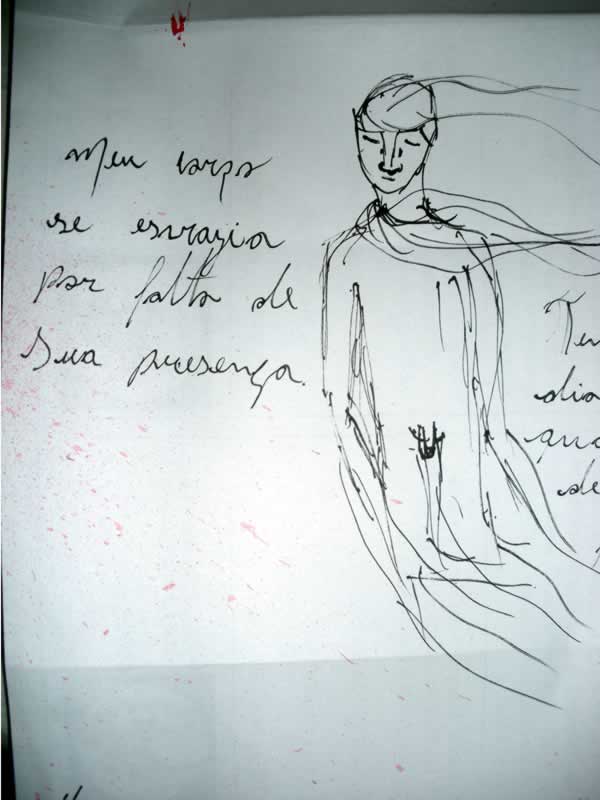 Meu corpo
se esvazia
por falta de
Sua presença.
dia
de